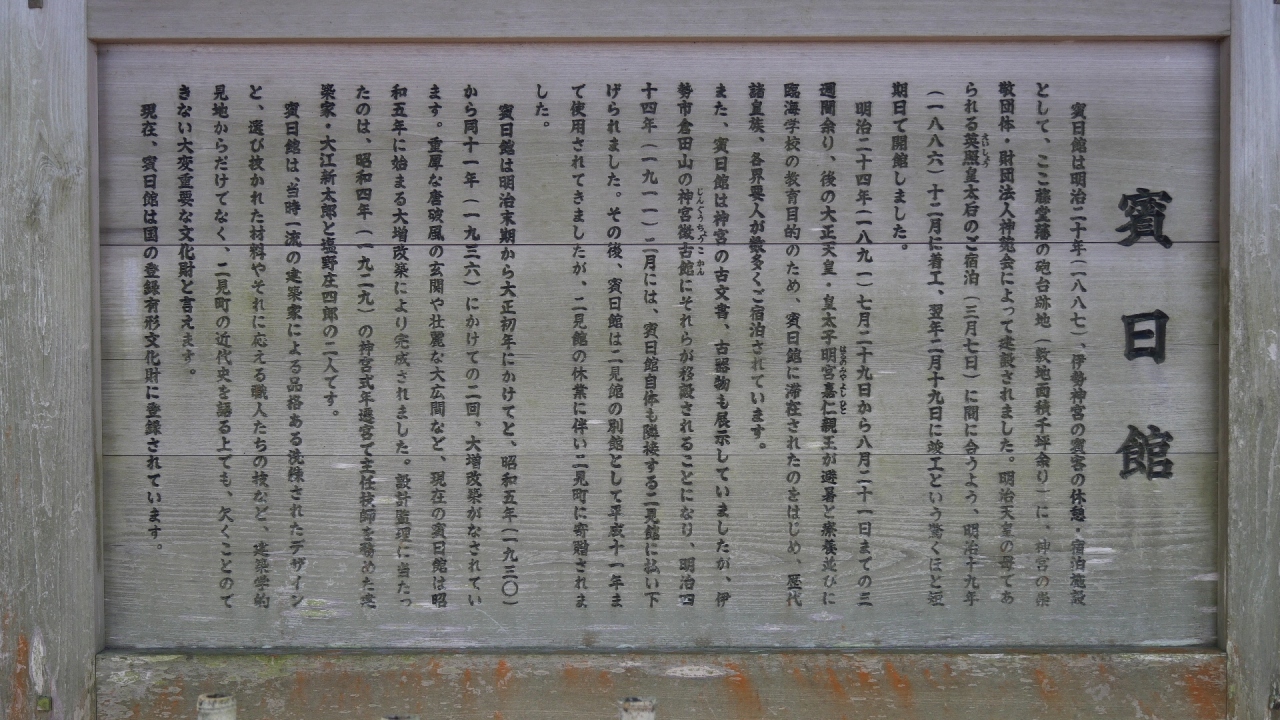 賓日館
賓日館は明治二十年（一八八七）、伊勢神宮の賓客の休憩・宿泊施設
として、ここ藤堂藩の砲台跡地（敷地面積千坪余り）に、神宮の崇
敬団体・財団法人神苑会によって建設されました。明治天皇の母であ
られる英照皇太后のご宿泊（三月七日）に間に合うよう、明治十九年
（一八八六）十二月に着工、翌年二月十九日に竣工という驚くほど短
期日で開館しました。
明治二十四年（一八九一）七月二十九日から八月二十一日までの三
週間余り、後の大正天皇・皇太子明宮嘉仁親王が避暑と療養並びに
臨海学校の教育目的のため、賓日館に滞在されたのをはじめ、歴代
諸皇族、各界要人が数多くご宿泊されています。
また、賓日館は神宮の古文書、古器物も展示していましたが、伊
勢市倉田山の神宮徴古館にそれらが移設されることになり、明治四
十四年（一九一一）二月には、賓日館自体も隣接する二見館に払い下
げられました。その後、賓日館は二見館の別館として平成十一年ま
で使用されてきましたが、二見館の休業に伴い二見町に寄贈されま
した。
賓日館は明治末期から大正初年にかけてと、昭和五年（一九三〇）
から同十一年（一九三六）にかけての二回、大増改築がなされてい
ます。重厚な唐破風の玄関や壮麗な大広間など、現在の賓日館は昭
和五年に始まる大増改築により完成されました。設計監理に当たっ
たのは、昭和四年（一九二九）の神宮式年遷宮で主任技師を務めた建
築家・大江新太郎と塩野庄四郎の二人です。
賓日館は、当時一流の建築家による品格ある洗練されたデザイン
と、選び抜かれた材料やそれに応える職人たちの技など、建築学的
見地からだけでなく、二見町の近代史を語る上でも、欠くことので
きない大変重要な文化財と言えます。
現在、賓日館は国の登録有形文化財に登録されています。